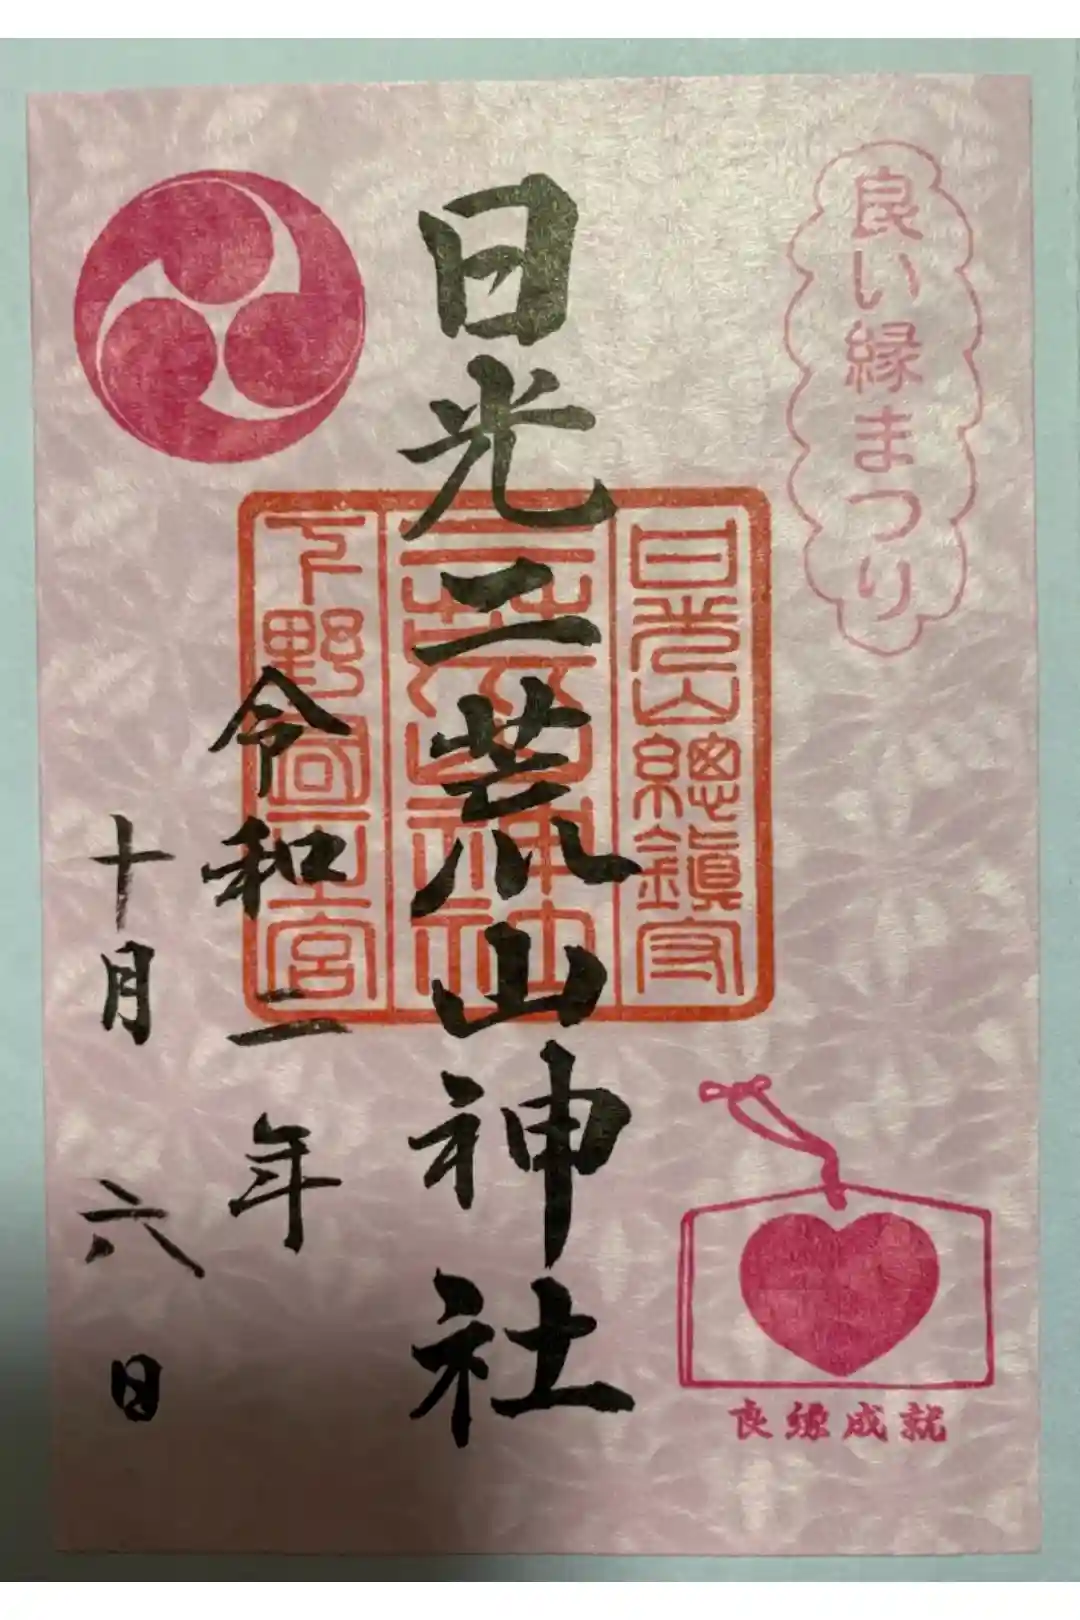 良い縁まつり
日光山總鎮守
二荒山神社
下野國一宮
日光二荒山神社
令和二年
十月六日
良縁成就